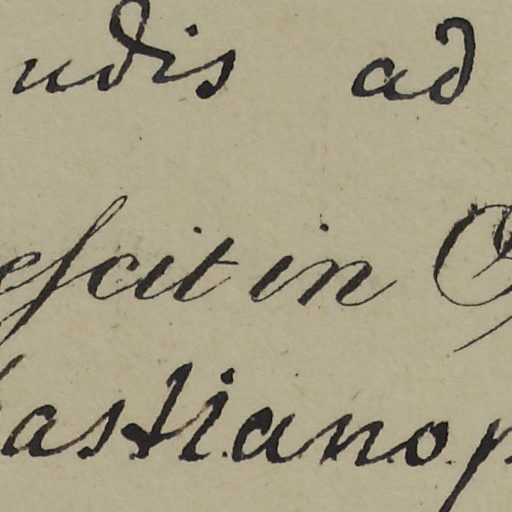 udis ad
escit in
astianop